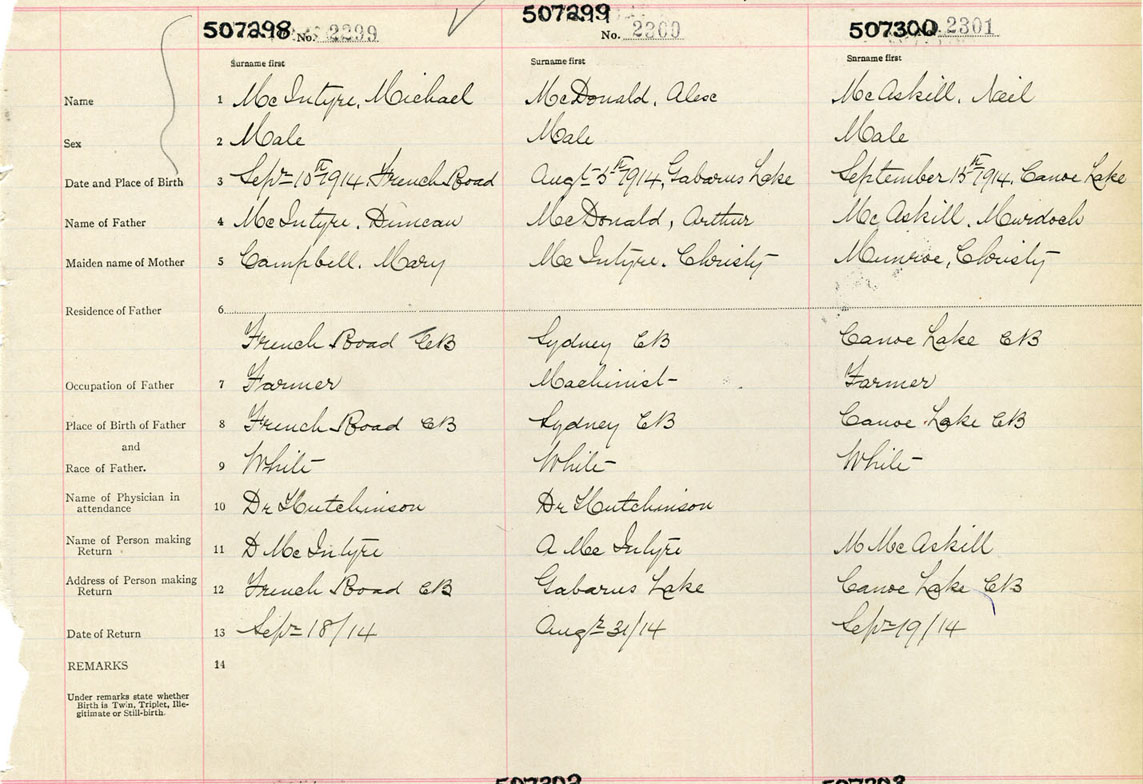 507298 No. 2299 507299 No. 2300 507300 2301
Surname first Surname first Surname first
Name 1 McIntyre, Michael McDonald, Alex McAskill, Neil
Sex 2 Male Male Male
Date and Place of Birth 3 Sepr 10th 1914, French Road Augt 5th 1914, Gabarus Lake September 15th 1914, Canoe Lake
Name of Father 4 McIntyre, Duncan McDonald, Arthur McAskill, Murdoch
Maiden name of Mother 5 Campbell, Mary McIntyre, Christy Munroe, Christy
Residence of Father 6
French Road CB Sydney CB Canoe Lake CB
Occupation of Father 7 Farmer Machinist Farmer
Place of Birth of Father 8 French Road CB Sydney CB Canoe Lake CB
and
Race of Father. 9 White White White
Name of Physician in
attendance 10 Dr Hutchinson Dr Hutchinson
Name of Person making
Return 11 D McIntyre A McIntyre M McAskill
Address of Person making
Return 12 French Road CB Gabarus Lake Canoe Lake CB
Date of Return 13 Sepr 18/14 Augt 31/14 Sepr 19/14
REMARKS 14
Under remarks state whether
Birth is Twin, Triplet, Ille-
gitimate or Still-birth.